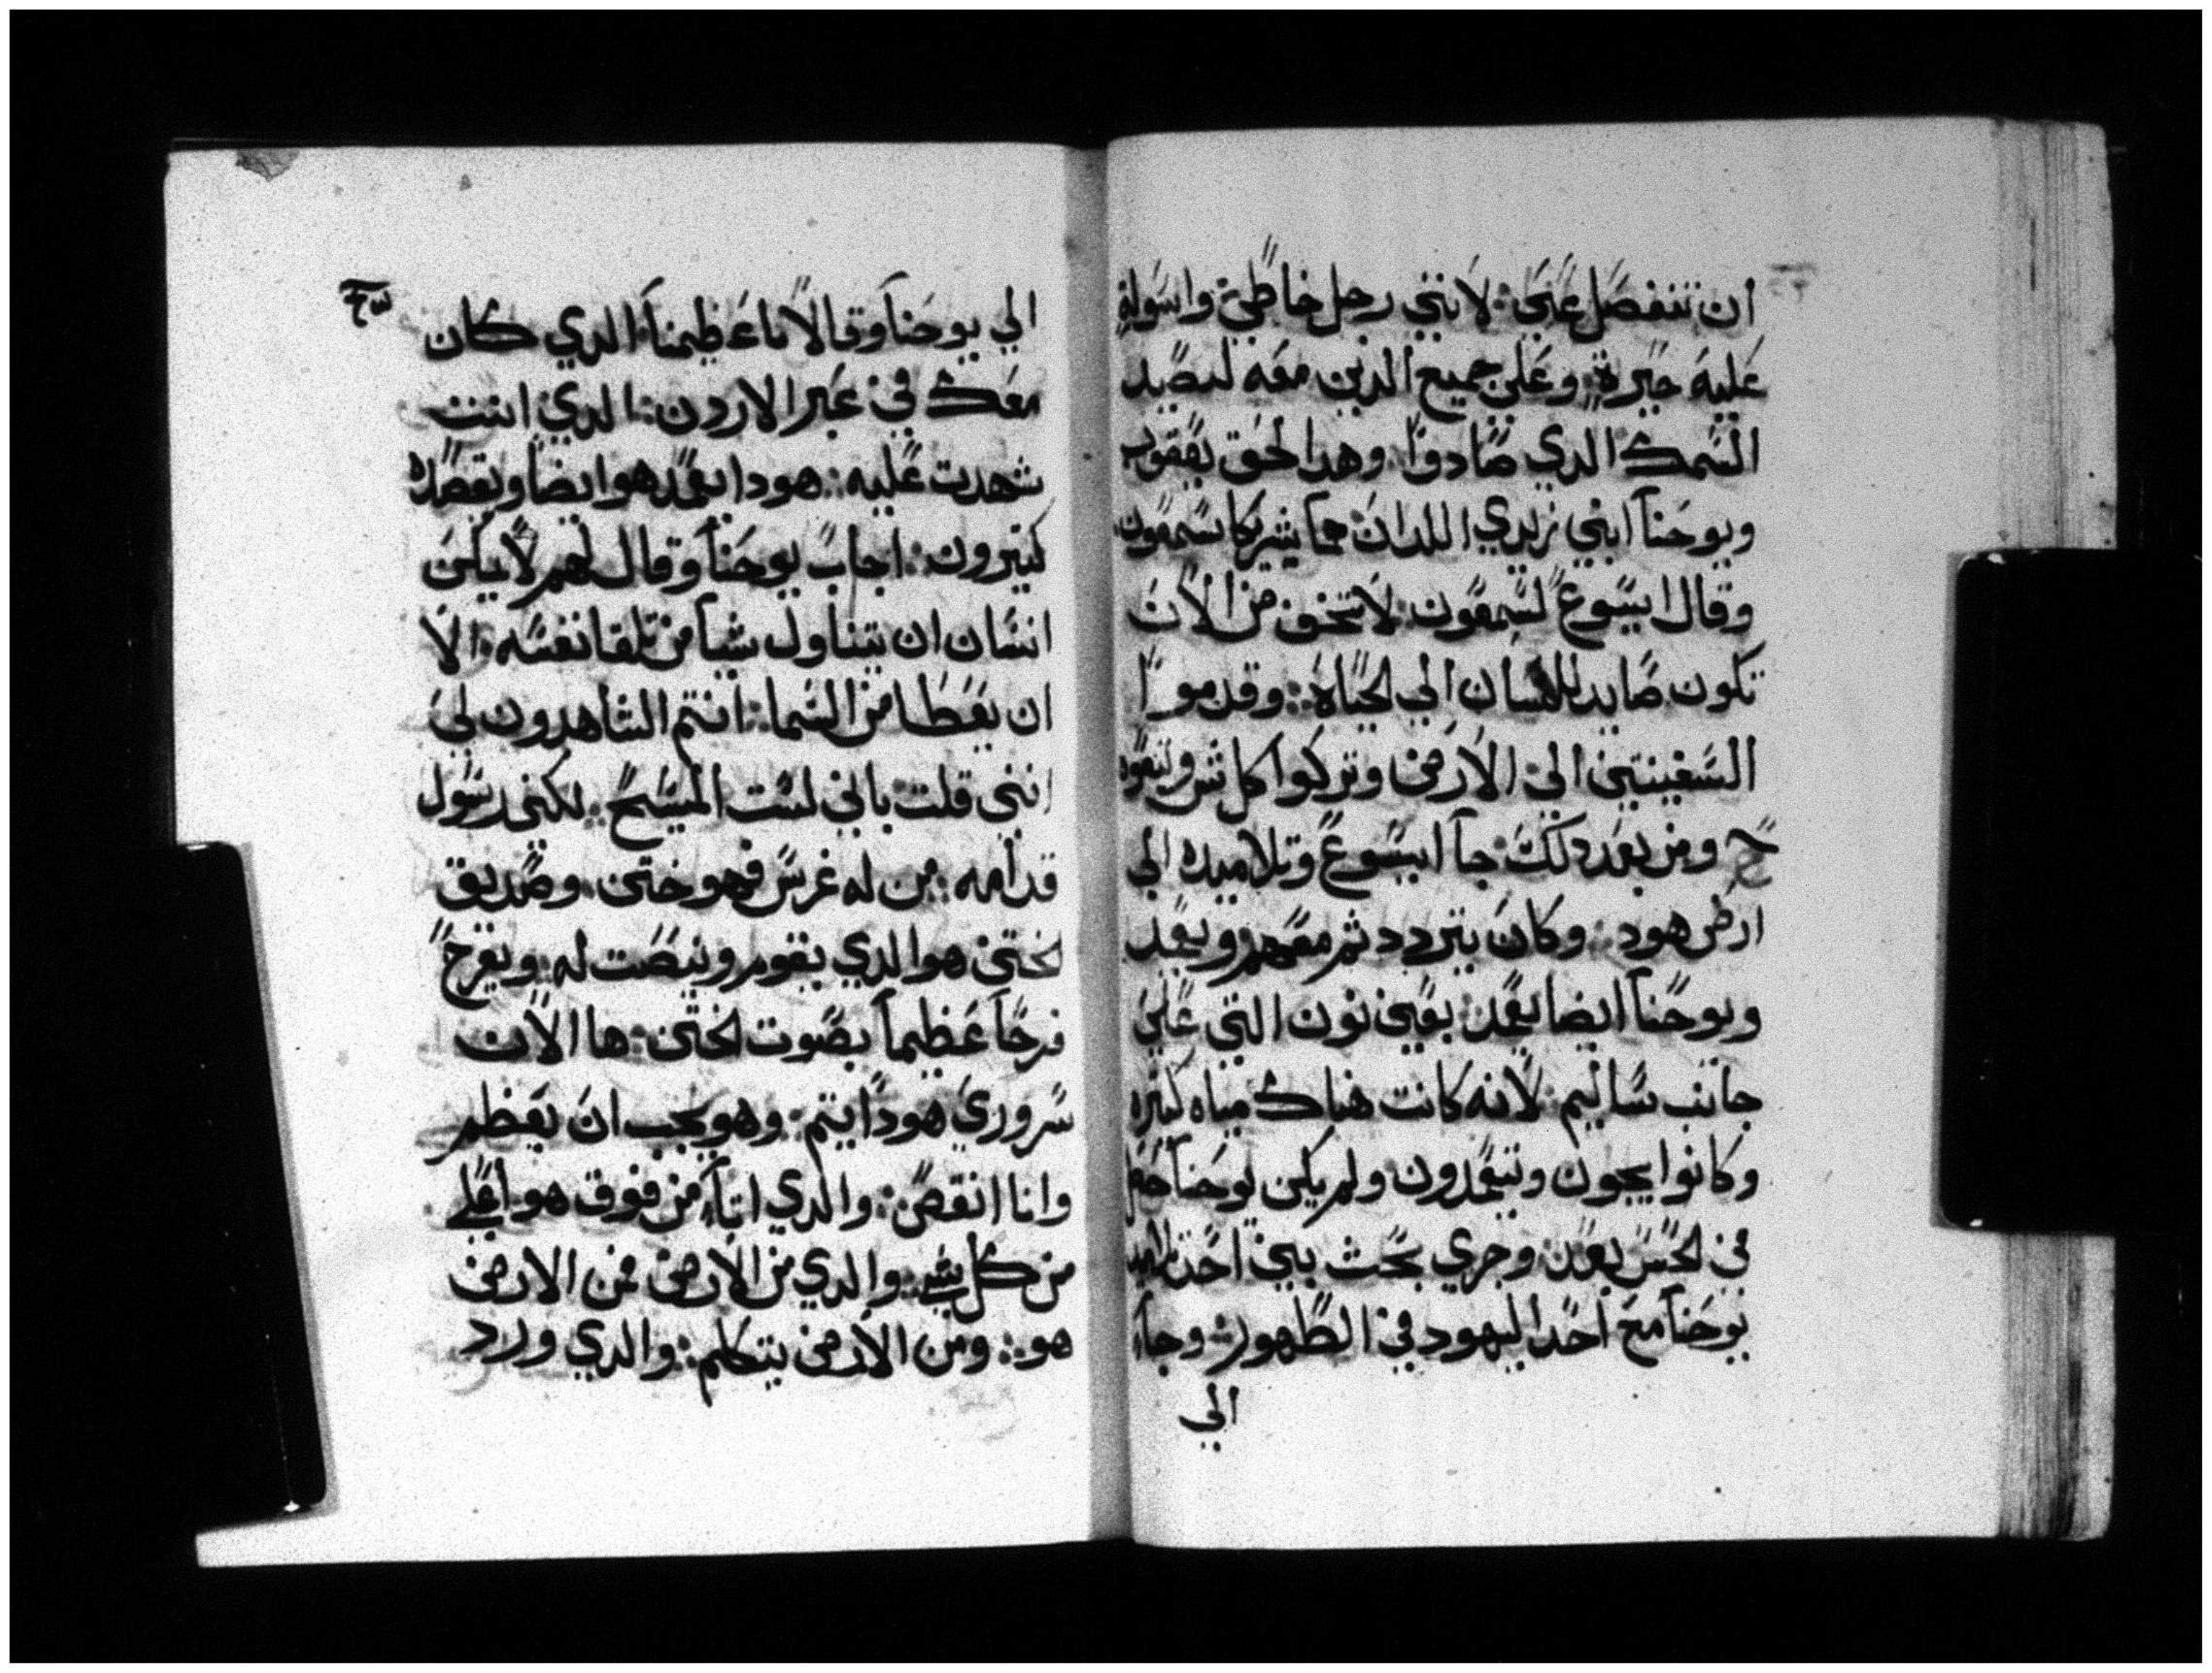 ان تنفصل عني: لانني رجل خاطي: واسولة
عليه حيرة: وعلى جميع الذين معه لصيد
السمك الدي صادوا: وهدا لحق يعقوب
ويوحنا ابني زبدي اللدان هما شريكا سمعون
وقال ايسوع لسمعون: لا تخف من الان
تكون صايد للناسان الي لحياة: وقدموا
السفينتين الى الارض وتركوا كل شي وتبعوه
ومن بعد دلك: جا ايسوع وتلاميده الي
ارض هود: وكان يتردد ثم معهم ويعمد
ويوحنا ايضا يعمد: بعين نون التي على
جانب ساليم: لانه كانت هناك مياه كتيره
وكانوا يجون ويتعمدون ولم يكن يوحنا حصل
في لحبس بعد: وجري بحث بين احد تلاميد
يوحنا مع احد اليهود في الطهور: وجاء
الي
الي يوحنا وقالا انا عظيمنا: الدي كان
معك في عبر الاردن: الدي انت
شهدت عليه: هودا يعمد هو ايضا ويقصده
كتيرون: اجاب يوحنا وقال لهم لا يمكن
انسان ان يتناول شيا من تلقا نفسه: الا
ان يعطا من السما: انتم الشاهدون لي
انني قلت باني لست المسيح: لكني رسول
قدامه: من له عرس فهو ختن: وصديق
لختن هو الدي يقوم وينصت له: ويفرح
فرحا عظيما بصوت لختن: ها الان
سروري هودا يتم: وهو يجب ان يعظم
وانا انقص: والدي اتا من فوق هو اعلي
من كل شي: والدي من الارض فمن الارض
هو: ومن الارض يتكلم: والدي ورد